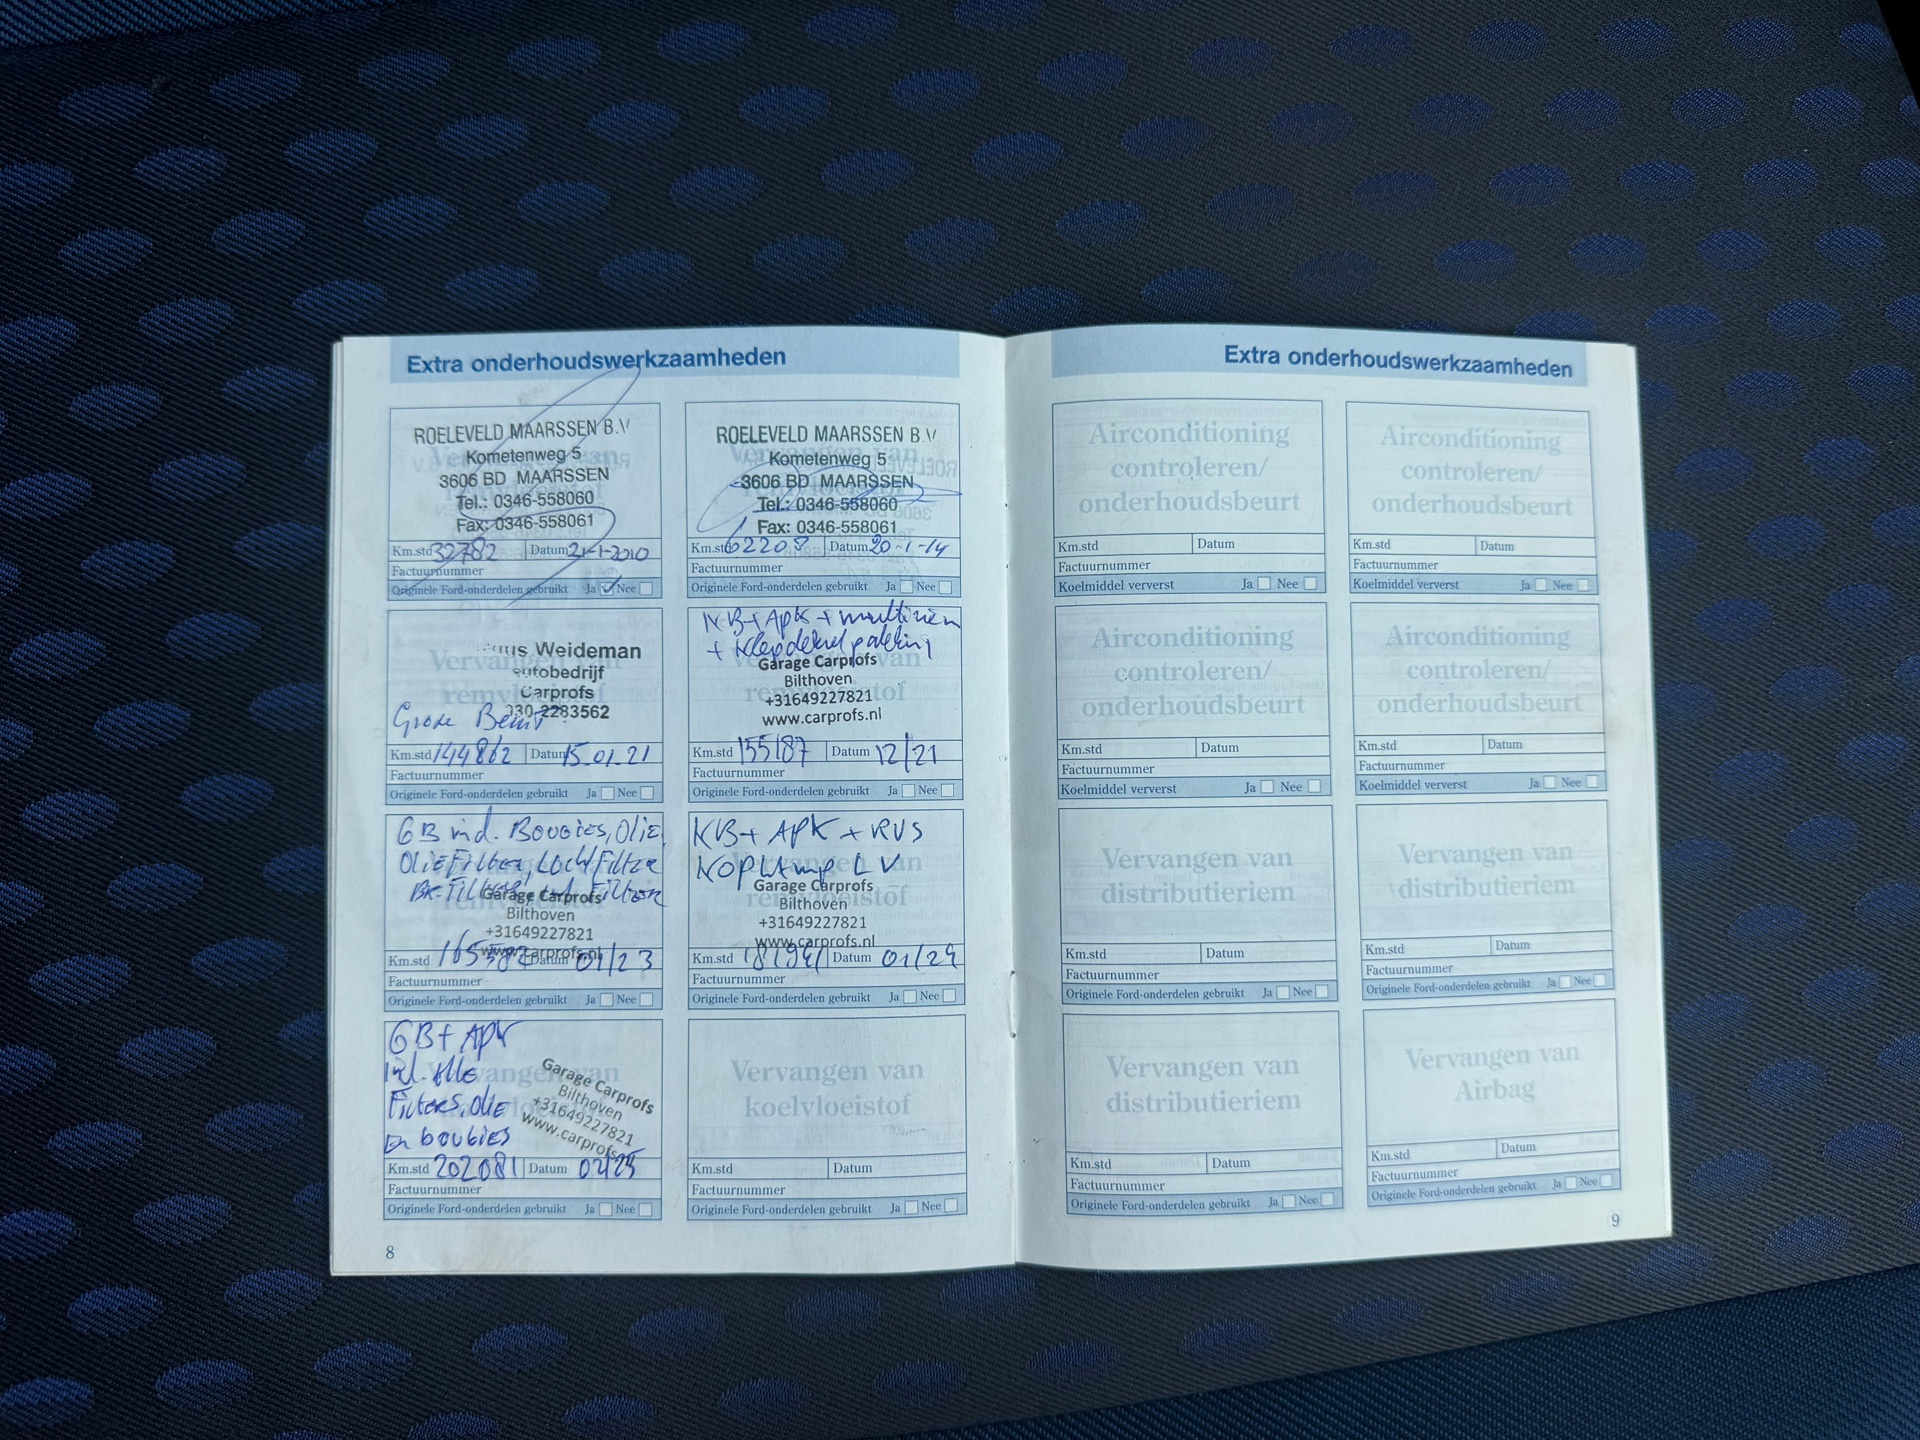 Extra onderhoudswerkzaamheden
ROELEVELD MAARSSEN B.V
Kometenweg 5
3606 BD MAARSSEN
Tel.: 0346-558060
Fax: 0346-558061
Km.std 32782 Datum 21-1-2010
Factuurnummer
Originele Ford-onderdelen gebruikt Ja Nee
ROELEVELD MAARSSEN B.V
Kometenweg 5
3606 BD MAARSSEN
Tel.: 0346-558060
Fax: 0346-558061
Km.std 62208 Datum 20-1-14
Factuurnummer
Originele Ford-onderdelen gebruikt Ja Nee
Weideman
autobedrijf
Carprofs
030-2283562
Grote Beurt
Km.std 144862 Datum 15-01-21
Factuurnummer
Originele Ford-onderdelen gebruikt Ja Nee
KB+ APK + multiriem
+ Klepdeksel pakking
Garage Carprofs
Bilthoven
+31649227821
www.carprofs.nl
Km.std 155187 Datum 12/21
Factuurnummer
Originele Ford-onderdelen gebruikt Ja Nee
GB incl. Bougies, Olie,
OlieFilter, LuchtFilter
Garage Carprofs
Bilthoven
+31649227821
www.carprofs.nl
Km.std 165582 Datum 01/23
Factuurnummer
Originele Ford-onderdelen gebruikt Ja Nee
KB+ APK + RVS
KOPLAmp LV
Garage Carprofs
Bilthoven
+31649227821
www.carprofs.nl
Km.std Datum 01/24
Factuurnummer
Originele Ford-onderdelen gebruikt Ja Nee
GB+ APK
incl. Alle
Filters, Olie
En bougies
Garage Carprofs
Bilthoven
+31649227821
www.carprofs
Km.std 202081 Datum 02/25
Factuurnummer
Originele Ford-onderdelen gebruikt Ja Nee
Vervangen van
koelvloeistof
Km.std Datum
Factuurnummer
Originele Ford-onderdelen gebruikt Ja Nee
8
Extra onderhoudswerkzaamheden
Airconditioning
controleren/
onderhoudsbeurt
Km.std Datum
Factuurnummer
Koelmiddel ververst Ja Nee
Airconditioning
controleren/
onderhoudsbeurt
Km.std Datum
Factuurnummer
Koelmiddel ververst Ja Nee
Airconditioning
controleren/
onderhoudsbeurt
Km.std Datum
Factuurnummer
Koelmiddel ververst Ja Nee
Airconditioning
controleren/
onderhoudsbeurt
Km.std Datum
Factuurnummer
Koelmiddel ververst Ja Nee
Vervangen van
distributieriem
Km.std Datum
Factuurnummer
Originele Ford-onderdelen gebruikt Ja Nee
Vervangen van
distributieriem
Km.std Datum
Factuurnummer
Originele Ford-onderdelen gebruikt Ja Nee
Vervangen van
distributieriem
Km.std Datum
Factuurnummer
Originele Ford-onderdelen gebruikt Ja Nee
Vervangen van
Airbag
Km.std Datum
Factuurnummer
Originele Ford-onderdelen gebruikt Ja Nee
9